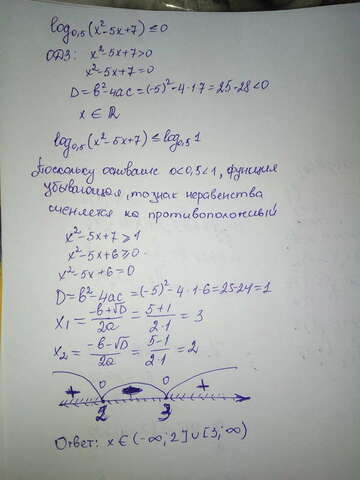 log₀,₅(x²-5x+7) ≤ 0
ОДЗ: x²-5x+7>0
x²-5x+7=0
D=b²-4ac=(-5)²-4·1·7=25-28<0
x ∈ ℝ
log₀,₅(x²-5x+7) ≤ log₀,₅1
Поскольку основание 0<0,5<1, функция
убывающая, то знак неравенства
сменяется на противоположный
x²-5x+7 ≥ 1
x²-5x+6 ≥ 0
x²-5x+6=0
D=b²-4ac=(-5)²-4·1·6=25-24=1
x₁ = (-b+√D)/2a = (5+1)/(2·1) = 3
x₂ = (-b-√D)/2a = (5-1)/(2·1) = 2
+ 0 - 0 +
2 3
Ответ: x ∈ (-∞; 2] ∪ [3; ∞)